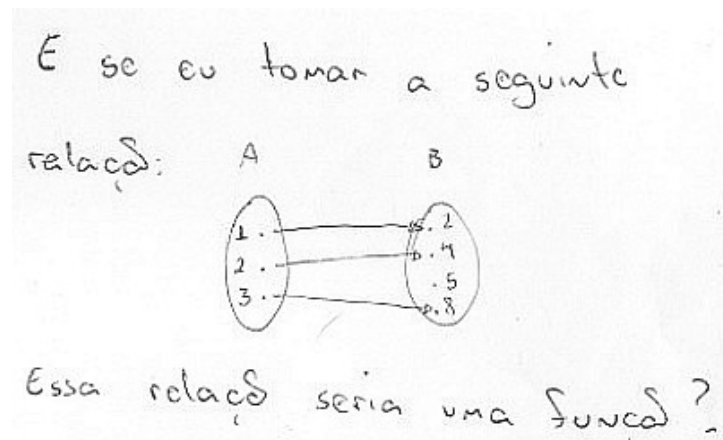 E se eu tomar a seguinte
relação:
A B
1 . . 2
2 . . 4
. 5
3 . . 8
Essa relação seria uma função?